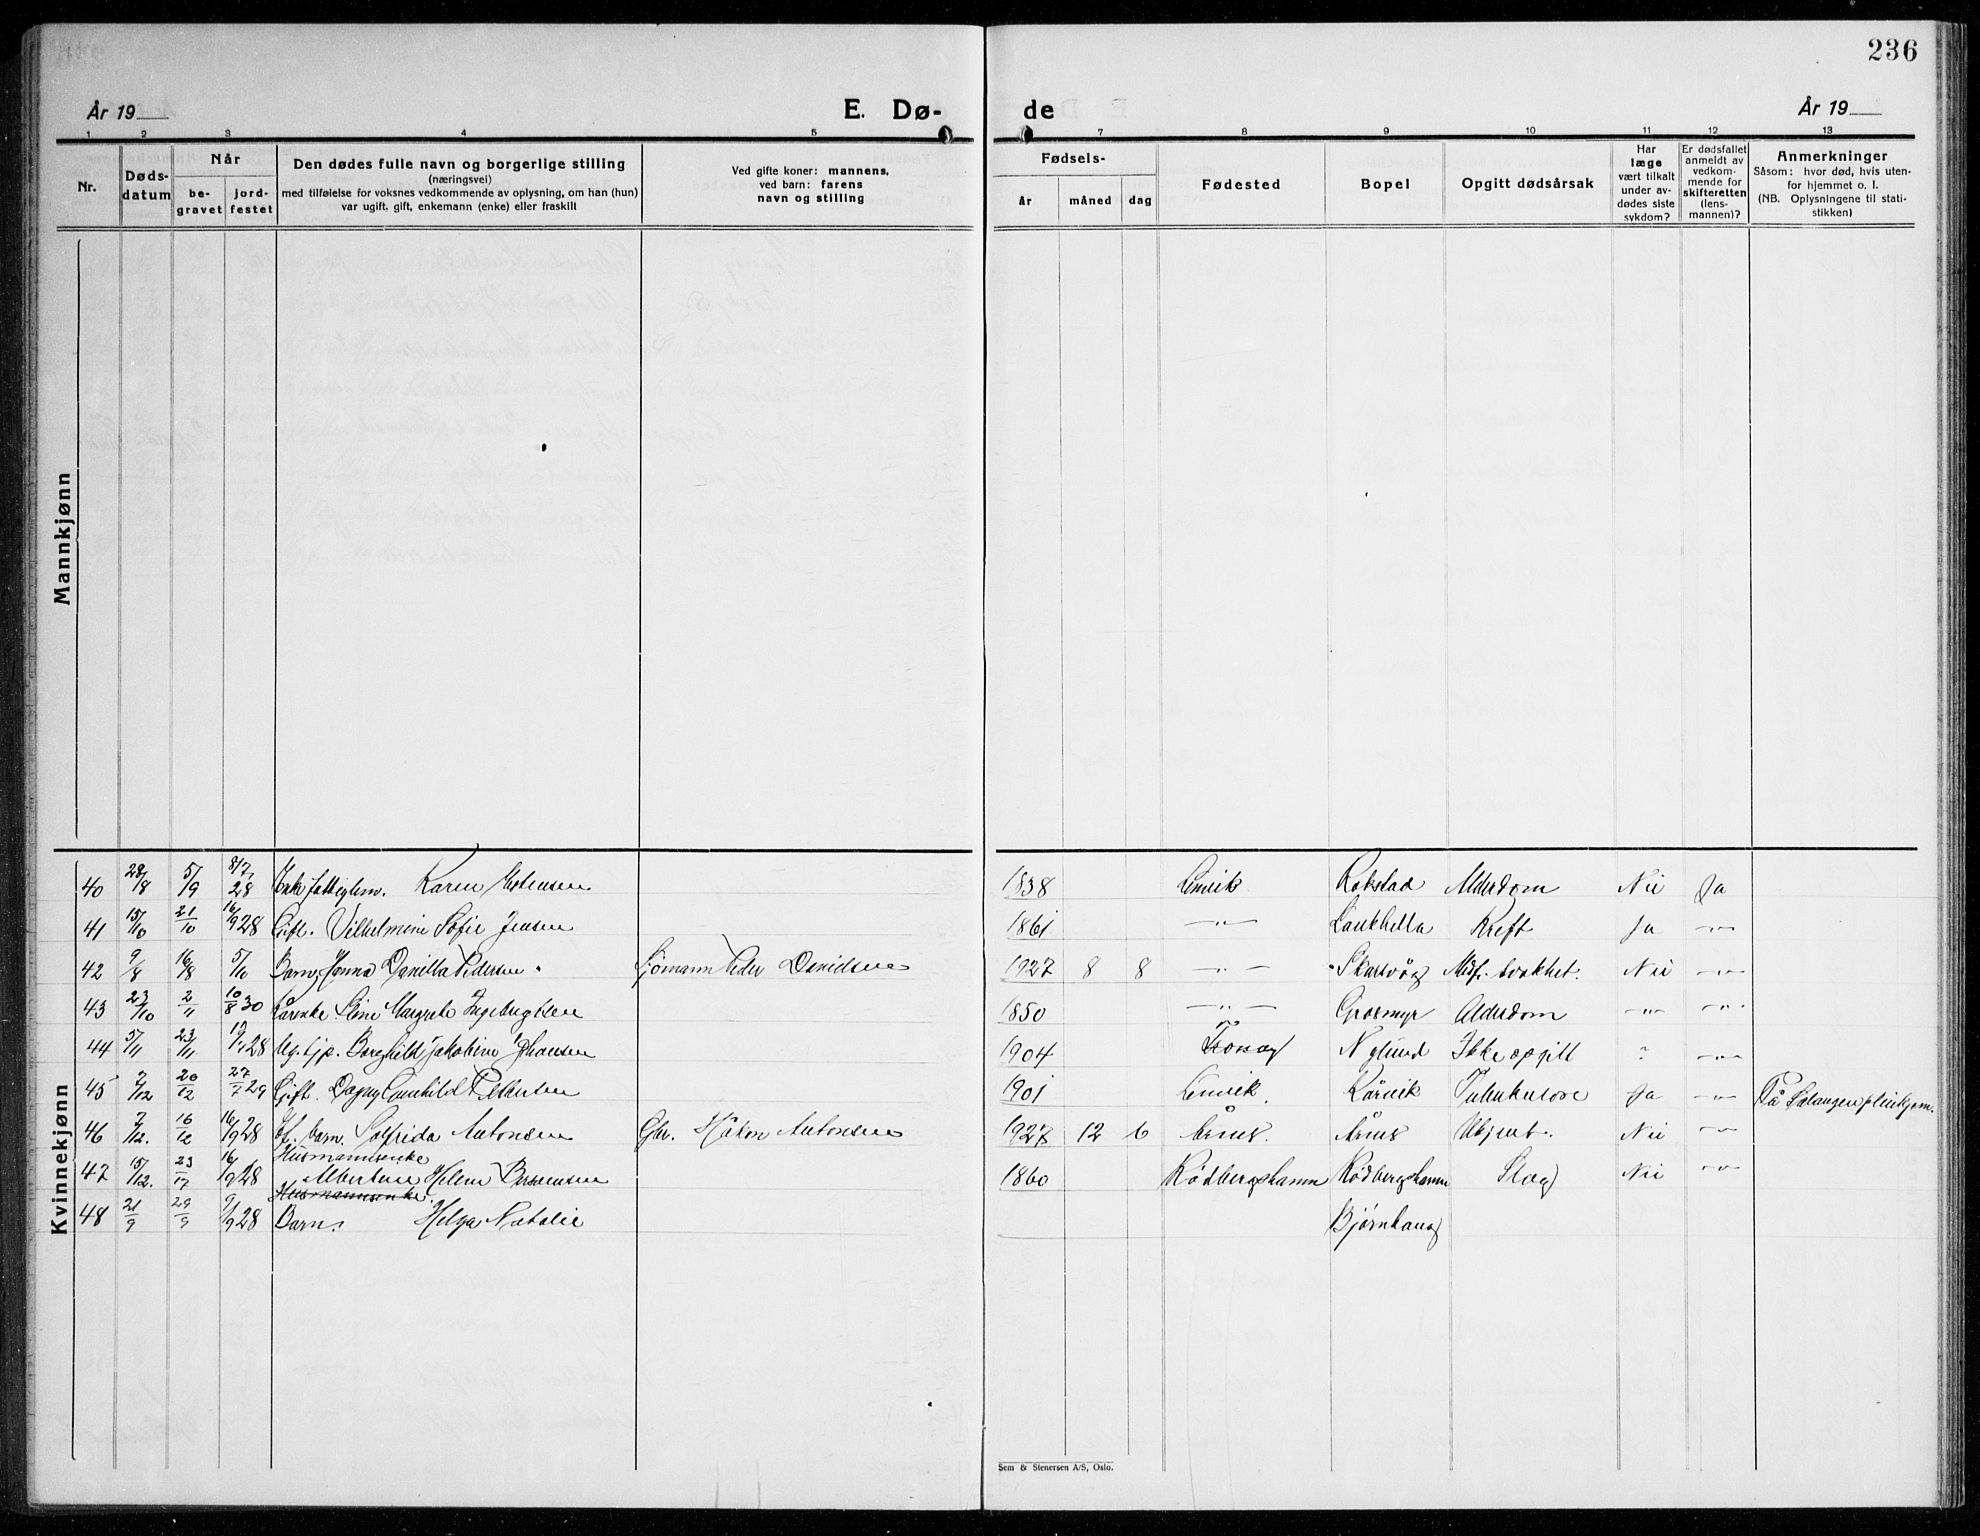 236
År 19
E. Dø-
de
År 19
1 2 3 4 5 7 8 9 10 11 12 13
Nr.
Døds-
datum
Når
be-
gravet
jord-
festet
Den dødes fulle navn og borgerlige stilling
(næringsvei)
med tilføielse for voksnes vedkommende av oplysning, om han (hun)
var ugift, gift, enkemann (enke) eller fraskilt
Ved gifte koner: mannens,
ved barn: farens
navn og stilling
Fødsels-
år måned dag
Fødested
Bopel
Opgitt dødsårsak
Har
læge
vært tilkalt
under av-
dødes siste
sykdom?
Er dødsfallet
anmeldt av
vedkom-
mende for
skifteretten
(lens-
mannen)?
Anmerkninger
Såsom: hvor død, hvis uten-
for hjemmet o. l.
(NB. Oplysningene til stati-
stikken)
Mannkjønn
Kvinnekjønn
40 28/8 5/9 8/7 28 Karen 1838 Lenvik Rokstad Alderdom Nei Ja
41 15/10 21/10 16/9 28 Gift. Vilhelmine Sofie Jensen 1861 -"- Laukhella Kreft Ja -"-
42 9/8 16/8 5/10 Barn, Hanna Danilla Pedersen. Sjömann Peder Danielsen 1927 8 8 -"- Skarsvåg Medf. svakhet. Nei -"-
43 23/10 2/11 10/8 30 Kårenke Margrete Ingebrigtsen 1850 -"- Grasmyr Alderdom -"- -"-
44 5/11 23/11 19/7 28 Ug. tjp. Borghild Jakobine Johansen 1904 Nylund Ikke opgitt ? -"-
45 2/12 20/12 27/7 29 Gift. Dagny Gunhild 1901 Lenvik. Kårvik Tuberkulose Ja -"- På Salangen pleiehjem.
46 7/12. 16/12 16/9 28 Gf. barn. Solfrida Antonsen Gbr. Håkon Antonsen 1927 12 6 Årnes. Årnes Ukjent. Nei -"-
Husmannsenke
47 15/12. 23/12 16/9 28 Albertine Helene 1860 Rödbergshamn Rödbergshamn Slag Nei -"-
Husmannsenke.
48 21/9 29/9 9/9 28 Barn. Helga Natalie Bjørnhaug
Sem & Stenersen A/S, Oslo.